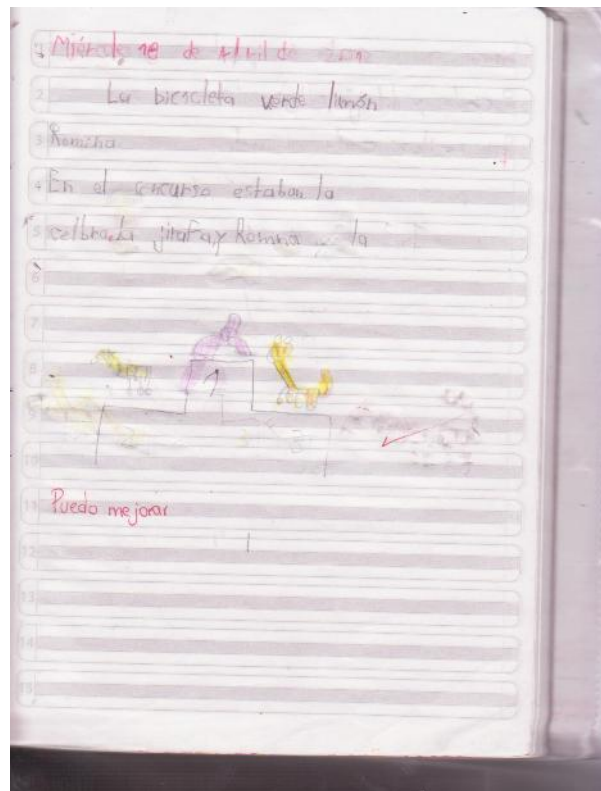 Miércole 18 de Abril de 2012
La bicicleta verde limón
Romina
En el concurso estaban la
celbrada jirafa y Romina la
1
Puedo mejorar